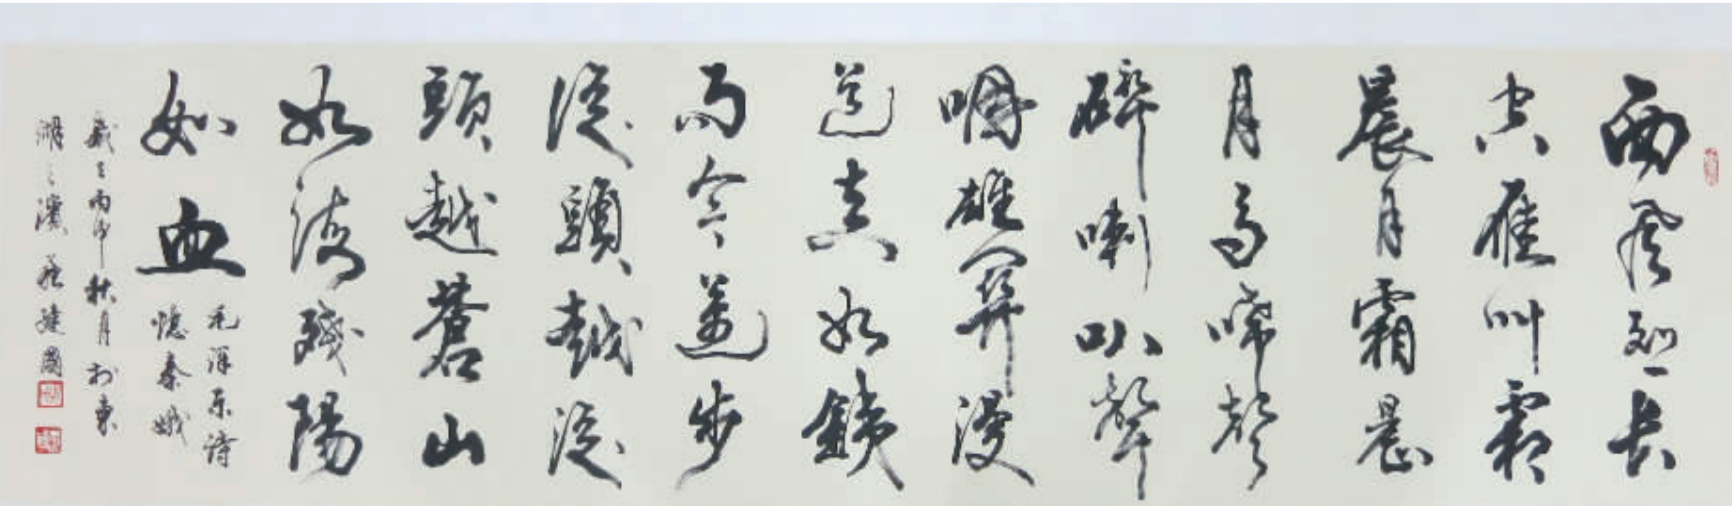 西风烈长
空雁叫霜
晨月霜晨
月马蹄声
碎喇叭聲
咽雄關漫
道真如鐵
而今邁步
從頭越從
頭越蒼山
如海殘陽
如血
毛泽东诗
憶秦娥
歲在丙申秋月於東
湖之濱建國